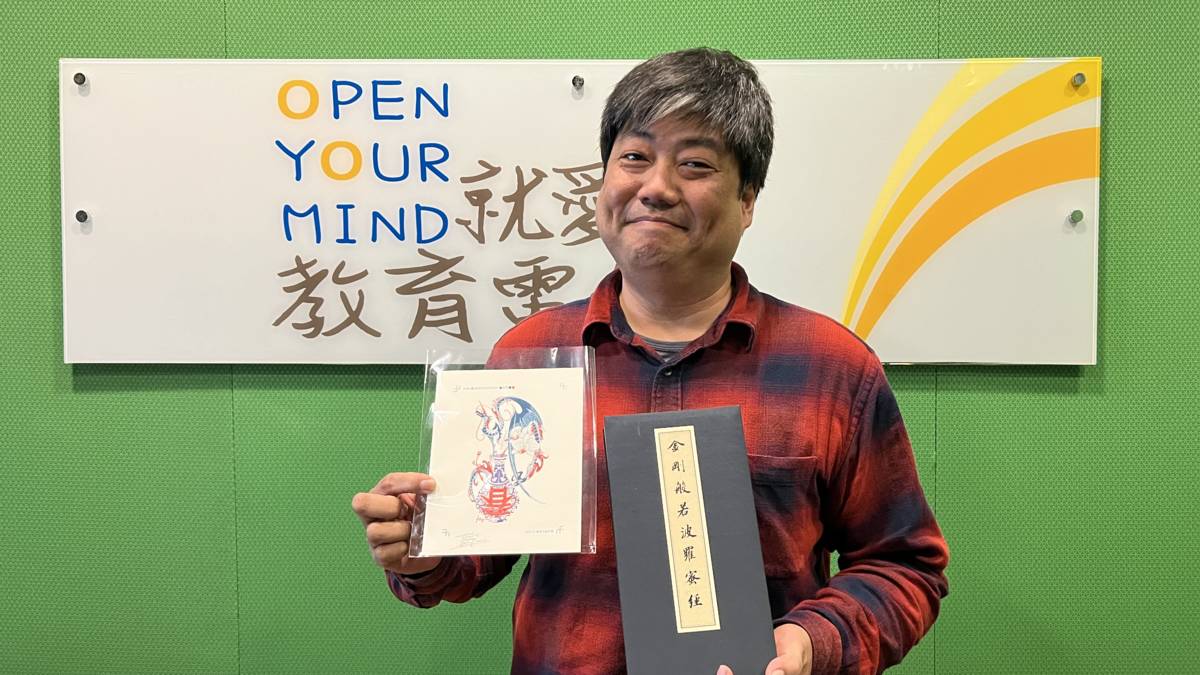 OPEN
YOUR
MIND 就愛
教育電
金剛般若波羅蜜經